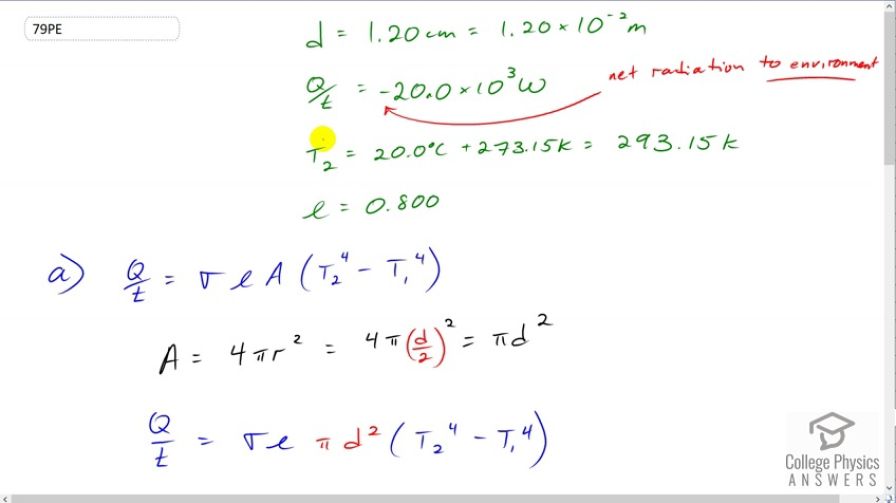 79PE
d = 1.20 cm = 1.20 × 10⁻² m
Q/t = -20.0 × 10³ W
net radiation to environment
T₂ = 20.0°C + 273.15K = 293.15 K
e = 0.800
a) Q/t = σ e A (T₂⁴ - T₁⁴)
A = 4πr² = 4π(d/2)² = πd²
Q/t = σ e π d² (T₂⁴ - T₁⁴)
College Physics
ANSWERS